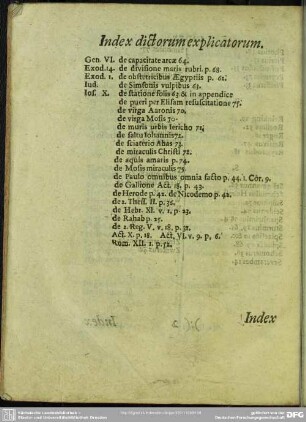 Index dictorum explicatorum.
Gen. VI. de capacitate arcæ 64.
Exod. 14. de divisione maris rubri. p. 68.
Exod. 1. de obstetricibus Ægyptiis p. 61.
Iud. de Simsonis vulpibus 63.
Ios. X. de statione solis 63 & in appendice
de pueri per Elisam resuscitatione 75.
de virga Aaronis 70.
de virga Mosis 70.
de muris urbis Iericho 71.
de saltu Iohannis 72.
de sciaterio Ahas 73.
de miraculis Christi 72.
de aquis amaris p. 74.
de Mosis miraculis 75.
de Paulo omnibus omnia facto p. 44. 1. Cor. 9.
de Gallione Act. 18. p. 43.
de Herode p. 42. de Nicodemo p. 42.
de 2. Thess. II. p. 36.
de Hebr. XI. v. 1. p. 23.
de Rahab p. 25.
de 2. Reg. V. v. 18. p. 31.
Act. X. p. 18. Act. VI. v. 9. p. 6.
Rom. XII. 1. p. 52.
Index